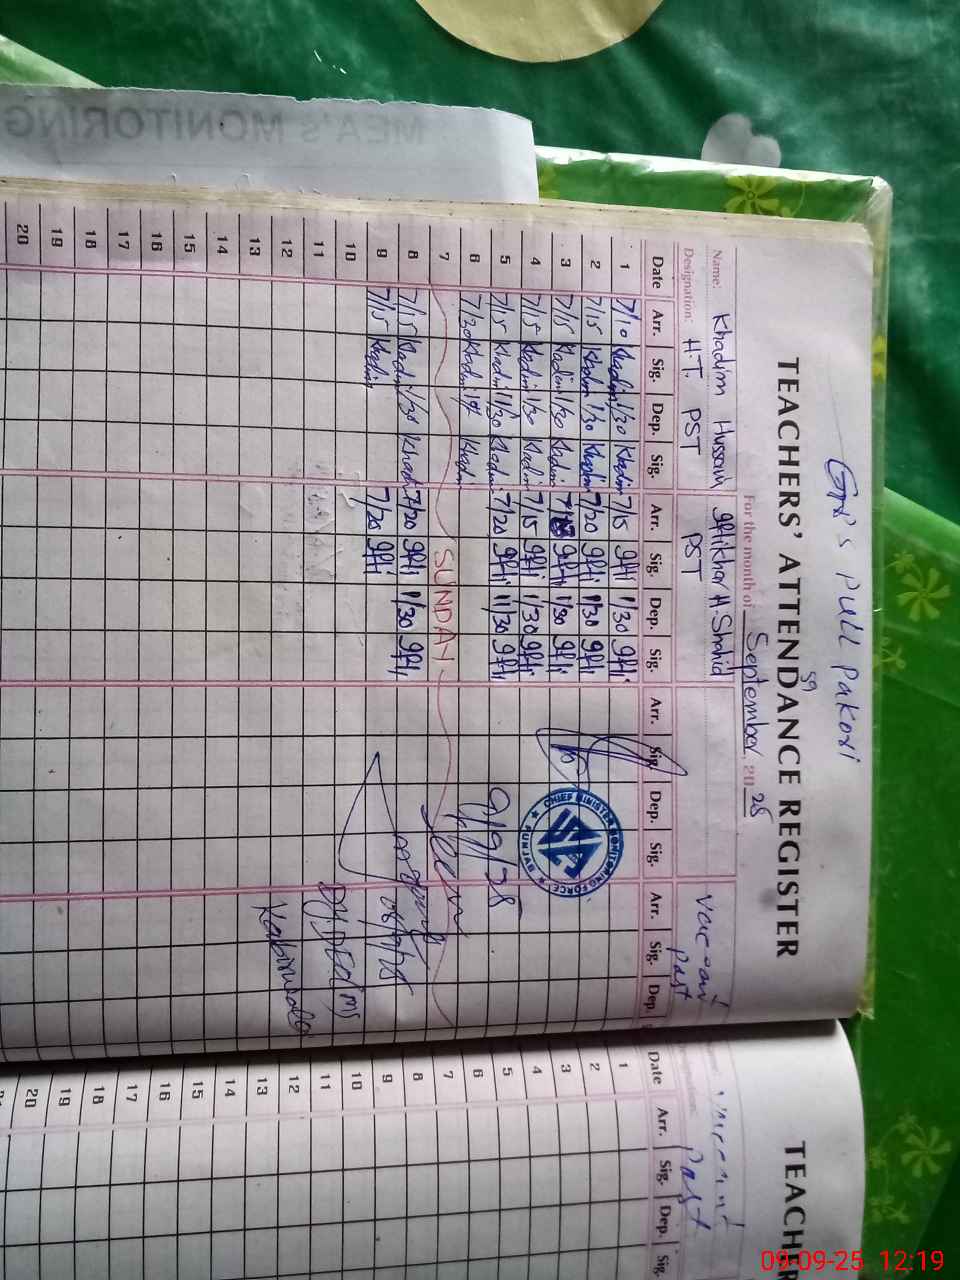 MEA's MONITORING
GPS Pull Pakori
TEACHERS' ATTENDANCE REGISTER
59
For the month of September, 2025
Name: Khadim Hussain Iftikhar H. Shahid Vaccant
Designation: H.T. PST PST Past
Date Arr. Sig. Dep. Sig. Arr. Sig. Dep. Sig. Arr. Sig. Dep. Sig. Arr. Sig. Dep.
1 7/10 Khadim 1/30 Khadim 7/15 Ifti 1/30 Ifti
2 7/15 Khadim 1/30 Khadim 7/20 Ifti 1/30 Ifti
3 7/15 Khadim 1/30 Khadim Ifti 1/30 Ifti
4 7/15 Khadim 1/30 Khadim 7/15 Ifti 1/30 Ifti
5 7/15 Khadim 11/30 Khadim 7/20 Ifti 11/30 Ifti
6 7/30 Khadim Khadim
7 SUNDAY
8 7/15 Khadim 1/30 Khadim 7/20 Ifti 1/30 Ifti
9 7/15 Khadim 7/20 Ifti
10
11
12
13
14
15
16
17
18
19
20
CHIEF MINISTER MONITORING FORCE
PUNJAB
9/9/25
Dy. DEO
Kabirwala
TEACHER
Past
Date Arr. Sig. Dep. Sig.
1
2
3
4
5
6
7
8
9
10
11
12
13
14
15
16
17
18
19
20
09-09-25 12:19